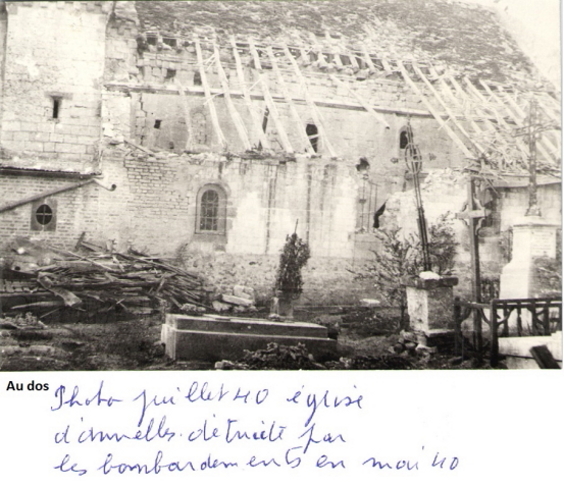 Au dos
Photo juillet 40 église
d'Annelles détruite par
les bombardements en mai 40